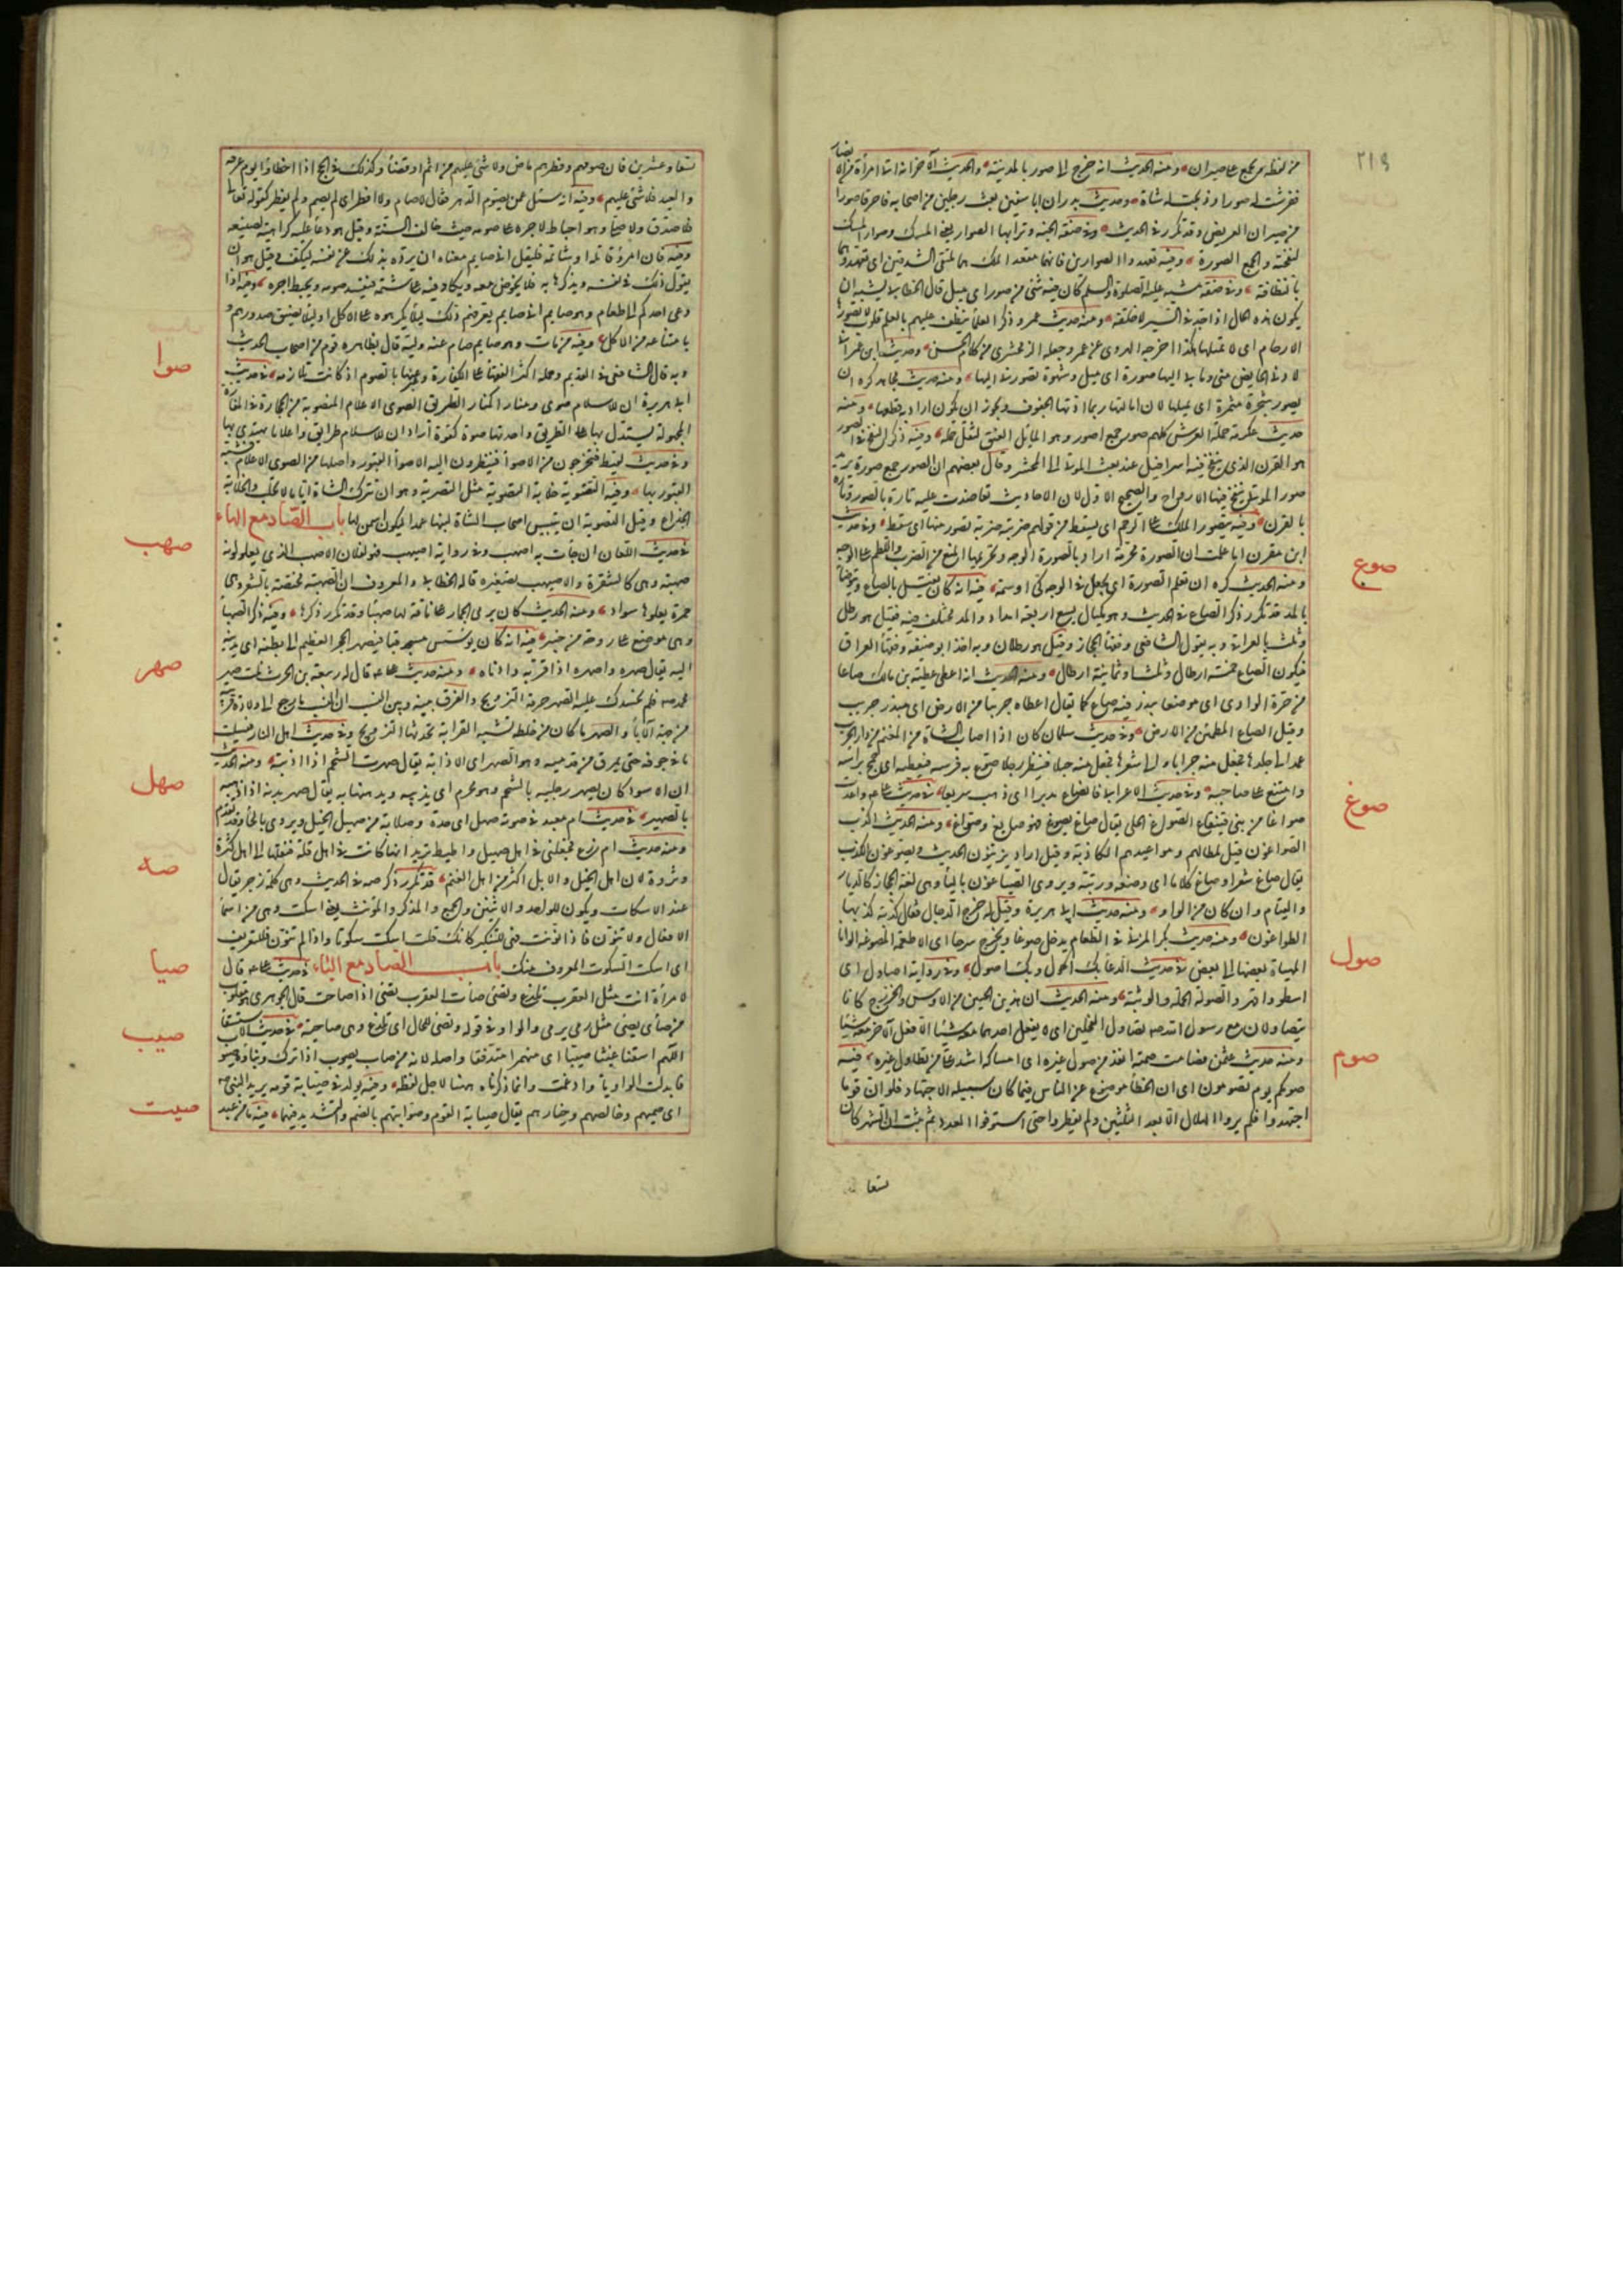 ٢١٩
من لفظه ويجمع على صيران ومنه الحديث انه خرج الى صور بالمدينة والحديث الآخر انه اتا امرأة من الانصار
ففرشت له صورا وذبحت له شاة وحديث بدر ان ابا سفين بعث رجلين من اصحابه فاحرقا صورا
من صيران العريض وقد تكرر في الحديث وفي صفة الجنة وترابها الصوار يعني المسك وصوار المسك
نفخته والجمع اصورة وفيه تعهدوا الصوارين فانهما مقعد الملك هما ملتقى الشدقين اى تعهدوهما
بالنظافة وفي صفة مشيه عليه الصلوة والسلم كان فيه شئ من صور اى ميل قال الخطابي يشبه ان
يكون هذه الحال اذا جد في السير لا خلقة ومنه حديث عمر وذكر العلماء تنعطف عليهم بالعلم قلوب لا تصورها
الارحام اى لا تميلها هكذا اخرجه الهروى عن عمر وجعله الزمخشرى من كلام الحسن وحديث ابن عمر انى
لادنى الحايض منى وما بى اليها صورة اى ميل وشهوة تصورنى اليها ومنه حديث مجاهد كره ان
يصور شجرة مثمرة اى يميلها لان امالتها ربما ادتها الجفوف ويجوز ان يكون اراد به قطعها ومنه
حديث عكرمة حملة العرش كلهم صور جمع اصور وهو المائل العنق لثقل حمله وفيه ذكر النفخ في الصور
هو القرن الذى ينفخ فيه اسرافيل عند بعث الموتى الى المحشر وقال بعضهم ان الصور جمع صورة يريد
صور الموتى ينفخ فيها الارواح والصحيح الاول لان الاحاديث تعاضدت عليه تارة بالصور وتارة
بالقرن وفيه يتصور الملك على الرحم اى يسقط من قولهم ضربته ضربة تصور منها اى سقط وفي حديث
ابن مقرن اما علمت ان الصورة محرمة اراد بالصورة الوجه وتحريمها المنع من الضرب واللطم على الوجه
ومنه الحديث كره ان تعلم الصورة اى يجعل في الوجه كى او سمة فيه انه كان يغتسل بالصاع ويتوضأ
بالمد قد تكرر ذكر الصاع في الحديث وهو مكيال يسع اربعة امداد والمد مختلف فيه فقيل هو رطل
وثلث بالعراقى وبه يقول الشافعى وفقهاء الحجاز وقيل هو رطلان وبه اخذ ابو حنيفة وفقهاء العراق
فيكون الصاع خمسة ارطال وثلثا وثمانية ارطال ومنه الحديث انه اعطى عطية بن مالك صاعا
من حرة الوادى اى موضعا يبذر فيه صاع كما يقال اعطاه جريبا من الارض اى مبذر جريب
وقيل الصاع المطمئن من الارض وفي حديث سلمان كان اذا اصاب الشاة من المغنم في دار الحرب
عمد الى جلدها فجعل منه جرابا والى شعرها فجعل منه حبلا فينظر رجلا صوع به فرسه فيعطيه اى جمح براسه
وامتنع على صاحبه وفي حديث الاعرابى فانصاع مدبرا اى ذهب سريعا في حديث على واعدت
صواغا من بنى قينقاع الصواغ الحلى يقال صاغ يصوغ فهو صايغ وصواغ ومنه الحديث اكذب
الصواغون قيل لمطالهم ومواعيدهم الكاذبة وقيل اراد يزينون الحديث ويصوغون الكذب
يقال صاغ شعرا وصاغ كلاما اى وضعه ورتبه ويروى الصياغون بالياء وهى لغة الحجاز كالديار
والقيام وان كان من الواو ومنه حديث ابى هريرة وقيل له خرج الدجال فقال كذبة كذبها
الصواغون ومنه حديث بكر المزنى في الطعام يدخل صوغا ويخرج سرحا اى الاطعمة المصوغة الوانا
المهياة بعضها الى بعض في حديث الدعاء بك احول وبك اصول وفي رواية اصاول اى
اسطو واقهر والصولة الحملة والوثبة ومنه الحديث ان هذين الحيين من الاوس والخزرج كانا
يتصاولان مع رسول الله صه تصاول الفحلين اى لا يفعل احدهما معه شيئا الا فعل الآخر معه شيئا
ومنه حديث عثمن فصامت صمته انفذ من صول غيره اى امساكه اشد على من تطاول غيره فيه
صومكم يوم تصومون اى ان الخطأ موضوع عن الناس فيما كان سبيله الاجتهاد فلو ان قوما
اجتهدوا فلم يروا الهلال الا بعد الثلثين ولم يفطروا حتى استوفوا العدد ثم ثبت ان الشهر كان
تسعا
صوع
صوغ
صول
صوم
تسعا وعشرين فان صومهم وفطرهم ماض ولا شئ عليهم من اثم او قضاء وكذلك في الحج اذا اخطاوا يوم عرفة
والعيد فلا شئ عليهم وفيه انه سئل عمن يصوم الدهر فقال لا صام ولا افطر اى لم يصم ولم يفطر كقوله تعالى
فلا صدق ولا صلى وهو احباط لاجره على صومه حيث خالف السنة وقيل هو دعاء عليه كراهية لصنيعه
وفيه فان امرؤ قاتله او شاتمه فليقل انى صايم معناه ان يرده بذلك عن نفسه لينكف وقيل هو ان
يقول ذلك في نفسه ويذكرها به فلا يخوض معه ويكافيه على شتمه فيفسد صومه ويحبط اجره وفيه اذا
دعى احدكم الى طعام وهو صايم فليقل انى صايم يعرفهم ذلك ليلا يكرهوه على الاكل او ليلا تضيق صدورهم
بامتناعه من الاكل وفيه من مات وهو صايم صام عنه وليه قال بظاهره قوم من اصحاب الحديث
وبه قال الشافعى في القديم وحمله اكثر الفقهاء على الكفارة وعبر عنها بالصوم اذ كانت تلازمه في حديث
ابى هريرة ان للاسلام صوى ومنارا كمنار الطريق الصوى الاعلام المنصوبة من الحجارة في المفازة
المجهولة يستدل بها على الطريق واحدتها صوة كقوة اراد ان للاسلام طرايق واعلاما يهتدى بها
وفي حديث لقيط فتخرجون من الاصواء فينظرون اليه الاصواء القبور واصلها من الصوى الاعلام فشبه
القبور بها وفيه التصوية خلابة التصوية مثل التصرية وهو ان تترك الشاة اياما لا تحلب والخلابة
الخداع وقيل التصوية ان ييبس اصحاب الشاة لبنها عمدا ليكون اسمن لها باب الصاد مع الهاء
في حديث اللعان ان جاءت به اصهب وفي رواية اصيهب فهو لفلان الاصهب الذى يعلو لونه
صهبة وهى كالشقرة والاصيهب تصغيره قاله الخطابى والمعروف ان الصهبة مختصة بالشعر وهى
حمرة يعلوها سواد ومنه الحديث كان يرمى الجمار على ناقة له صهباء وقد تكرر ذكرها وفيه ذكر الصهباء
وهى موضع على روحة من خيبر فيه انه كان يؤسس مسجد قبا فيصهر الحجر العظيم الى بطنه اى يدنيه
اليه يقال صهره واصهره اذا قربه وادناه ومنه حديث على قال له ربيعة بن الحرث نلت صهر
محمد صه فلم نحسدك عليه الصهر حرمة التزويج والفرق بينه وبين النسب ان النسب ما رجع الى ولادة قريبة
من جهة الآباء والصهر ما كان من خلطة تشبه القرابة يحدثها التزويج وفي حديث اهل النار فيسلت
ما في جوفه حتى يمرق من قدميه وهو الصهر اى الاذابة يقال صهرت الشحم اذا اذبته ومنه الحديث
ان الاسود كان يصهر رجليه بالشحم وهو محرم اى يذيبه ويدهنهما به يقال صهر بدنه اذا دهنه
بالصهير في حديث ام معبد في صوته صهل اى حدة وصلابة من صهيل الخيل ويروى بالحاء وقد تقدم
ومنه حديث ام زرع فجعلنى في اهل صهيل واطيط تريد انها كانت في اهل قلة فنقلها الى اهل كثرة
وثروة لان اهل الخيل والابل اكثر من اهل الغنم قد تكرر ذكر صه في الحديث وهى كلمة زجر تقال
عند الاسكات ويكون للواحد والاثنين والجمع والمذكر والمؤنث يعنى اسكت وهى من اسماء
الافعال ولا تنون فاذا نونت فهى للتنكير كانك قلت اسكت سكوتا واذا لم تنون فللتعريف
اى اسكت السكوت المعروف منك باب الصاد مع الياء في حديث على قال
لامرأة انت مثل العقرب تلدغ وتصئى صاءت العقرب تصئى اذا صاحت قال الجوهرى هو مقلوب
من صاى يصئى مثل رمى يرمى والواو في قوله وتصئى للحال اى تلدغ وهى صايحة في حديث الاستسقاء
اللهم اسقنا غيثا صيبا اى منهمرا متدفقا واصله لانه من صاب يصوب اذا نزل وبناؤه صيوب
فابدلت الواو ياء وادغمت وانما ذكرناه ههنا لاجل لفظه وفيه يولد في صيابة قومه يريد النبى صه
اى صميمهم وخالصهم وخيارهم يقال صيابة القوم وصوابتهم بالضم والتشديد فيهما فيه ما من عبد
صوا
صهب
صهر
صهل
صه
صيا
صيب
صيت